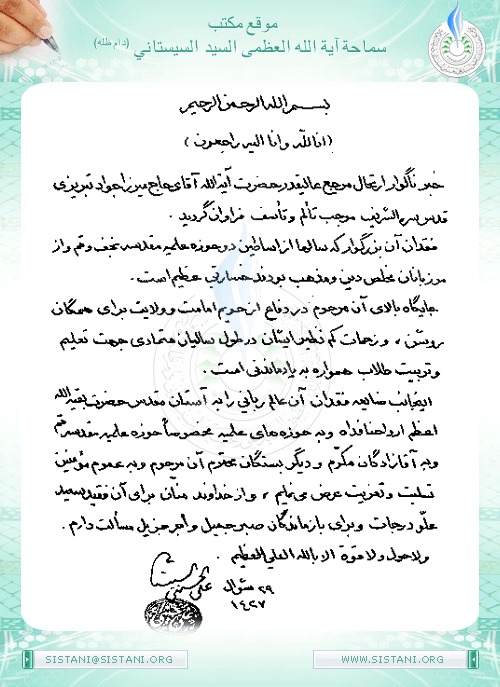 موقع مكتب
سماحة آية الله العظمى السيد السيستاني (دام ظله)
بسم الله الرحمن الرحیم
(انا لله وانا الیه راجعون)
خبر ناگوار ارتحال مرجع عالیقدر حضرت آیة الله آقای حاج میرزا جواد تبریزی
قدس سره الشریف موجب تألم و تأسف فراوان گردید .
فقدان آن بزرگوار که سالها از اساطین دو حوزه علمیه مقدسه نجف و قم و از
مرزبانان مخلص دین و مذهب بودند خسارتی عظیم است .
جایگاه بالای آن مرحوم در دفاع از حریم امامت و ولایت برای همگان
روشن ، و زحمات کم نظیر ایشان در طول سالیان متمادی جهت تعلیم
و تربیت طلاب همواره به یاد ماندنی است .
اینجانب ضایعه فقدان آن عالم ربانی را به آستان مقدس حضرت بقیة الله
اعظم ارواحنا فداه و به حوزه های علمیه مخصوصاً حوزه علمیه مقدسه قم
و به آقازادگان مکرّم و دیگر بستگان محترم آن مرحوم و به عموم مؤمنین
تسلیت و تعزیت عرض می نمایم ، و از خداوند منّان برای آن فقید سعید
علوّ درجات و برای بازماندگان صبر جمیل و أجر جزیل مسألت دارم .
ولا حول ولا قوة الا بالله العلی العظیم .
۲۹ شوال
۱٤۲۷
علی الحسینی السیستانی
SISTANI@SISTANI.ORG
WWW.SISTANI.ORG